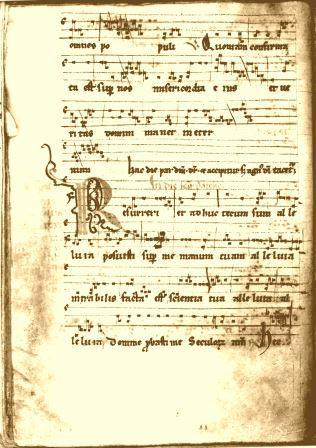 omnes po puli Quoniam confirma
ta est sup nos misericordia e ius et ue
ritas domini manet in eter
num hac die
Resurrexi et ad huc tecum sum al le
luia posuisti sup me manum tuam al le luia
mirabilis facta est scientia tua alle luia al
le luia Domine pbasti me Seculorum am Hec